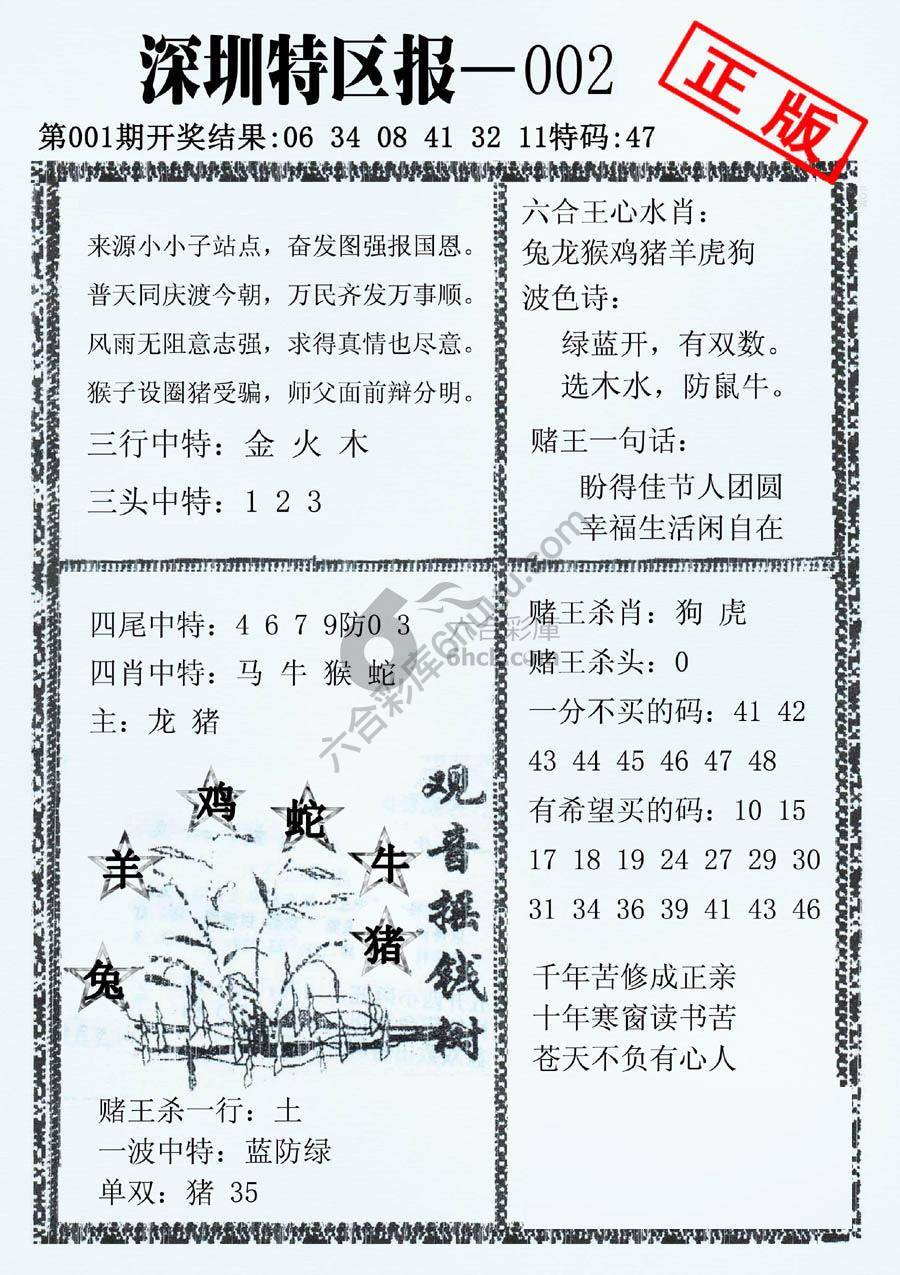 深圳特区报—002
正版
第001期开奖结果:06 34 08 41 32 11特码:47
来源小小子站点，奋发图强报国恩。
普天同庆渡今朝，万民齐发万事顺。
风雨无阻意志强，求得真情也尽意。
猴子设圈猪受骗，师父面前辩分明。
三行中特：金 火 木
三头中特：1 2 3
六合王心水肖：
兔龙猴鸡猪羊虎狗
波色诗：
绿蓝开，有双数。
选木水，防鼠牛。
赌王一句话：
盼得佳节人团圆
幸福生活闲自在
四尾中特：4 6 7 9防0 3
四肖中特：马 牛 猴 蛇
主：龙 猪
鸡
蛇
羊
牛
猪
兔
观音摇钱树
赌王杀一行：土
一波中特：蓝防绿
单双：猪 35
赌王杀肖：狗 虎
赌王杀头：0
一分不买的码：41 42
43 44 45 46 47 48
有希望买的码：10 15
17 18 19 24 27 29 30
31 34 36 39 41 43 46
千年苦修成正亲
十年寒窗读书苦
苍天不负有心人
六合彩库
6hck.com